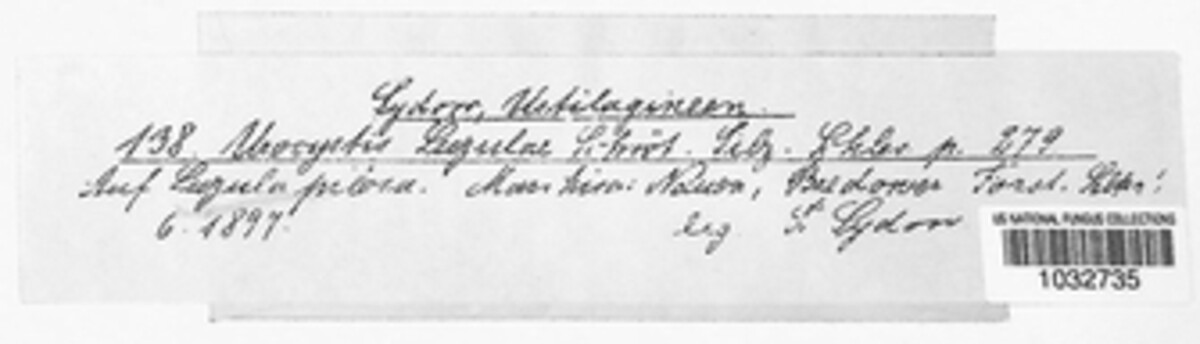 Sydow, Ustilagineen.
138. Urocystis Luzulae Schröt. Pilz. Schles p. 279
Auf Luzula pilosa. Mar Nauen, Bredower Forst.
6. 1897. leg. P. Sydow
US NATIONAL FUNGUS COLLECTIONS
1032735